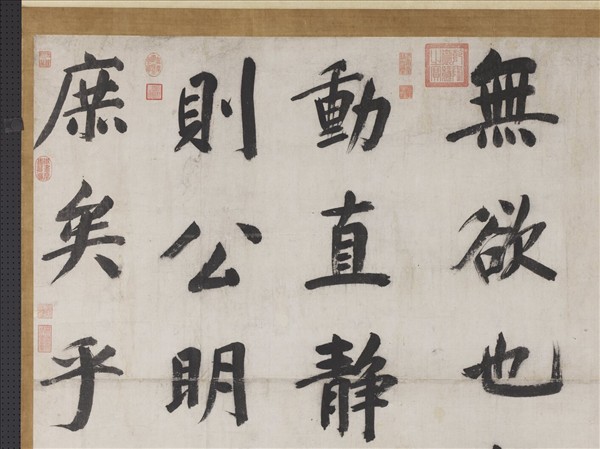 無欲也
動直靜
則公明
庶矣乎